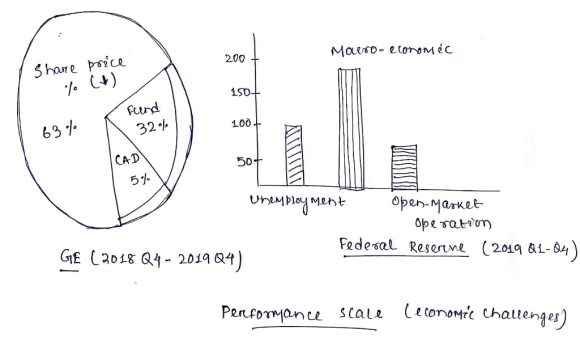 Share price
% (↓)
63%
Fund
32%
CAD
5%
GE (2018 Q4 - 2019 Q4)
Macro-economic
200
150
100
50
Unemployment
Open-Market
Operation
Federal Reserve (2019 Q1-Q4)
Performance scale (economic challenges)